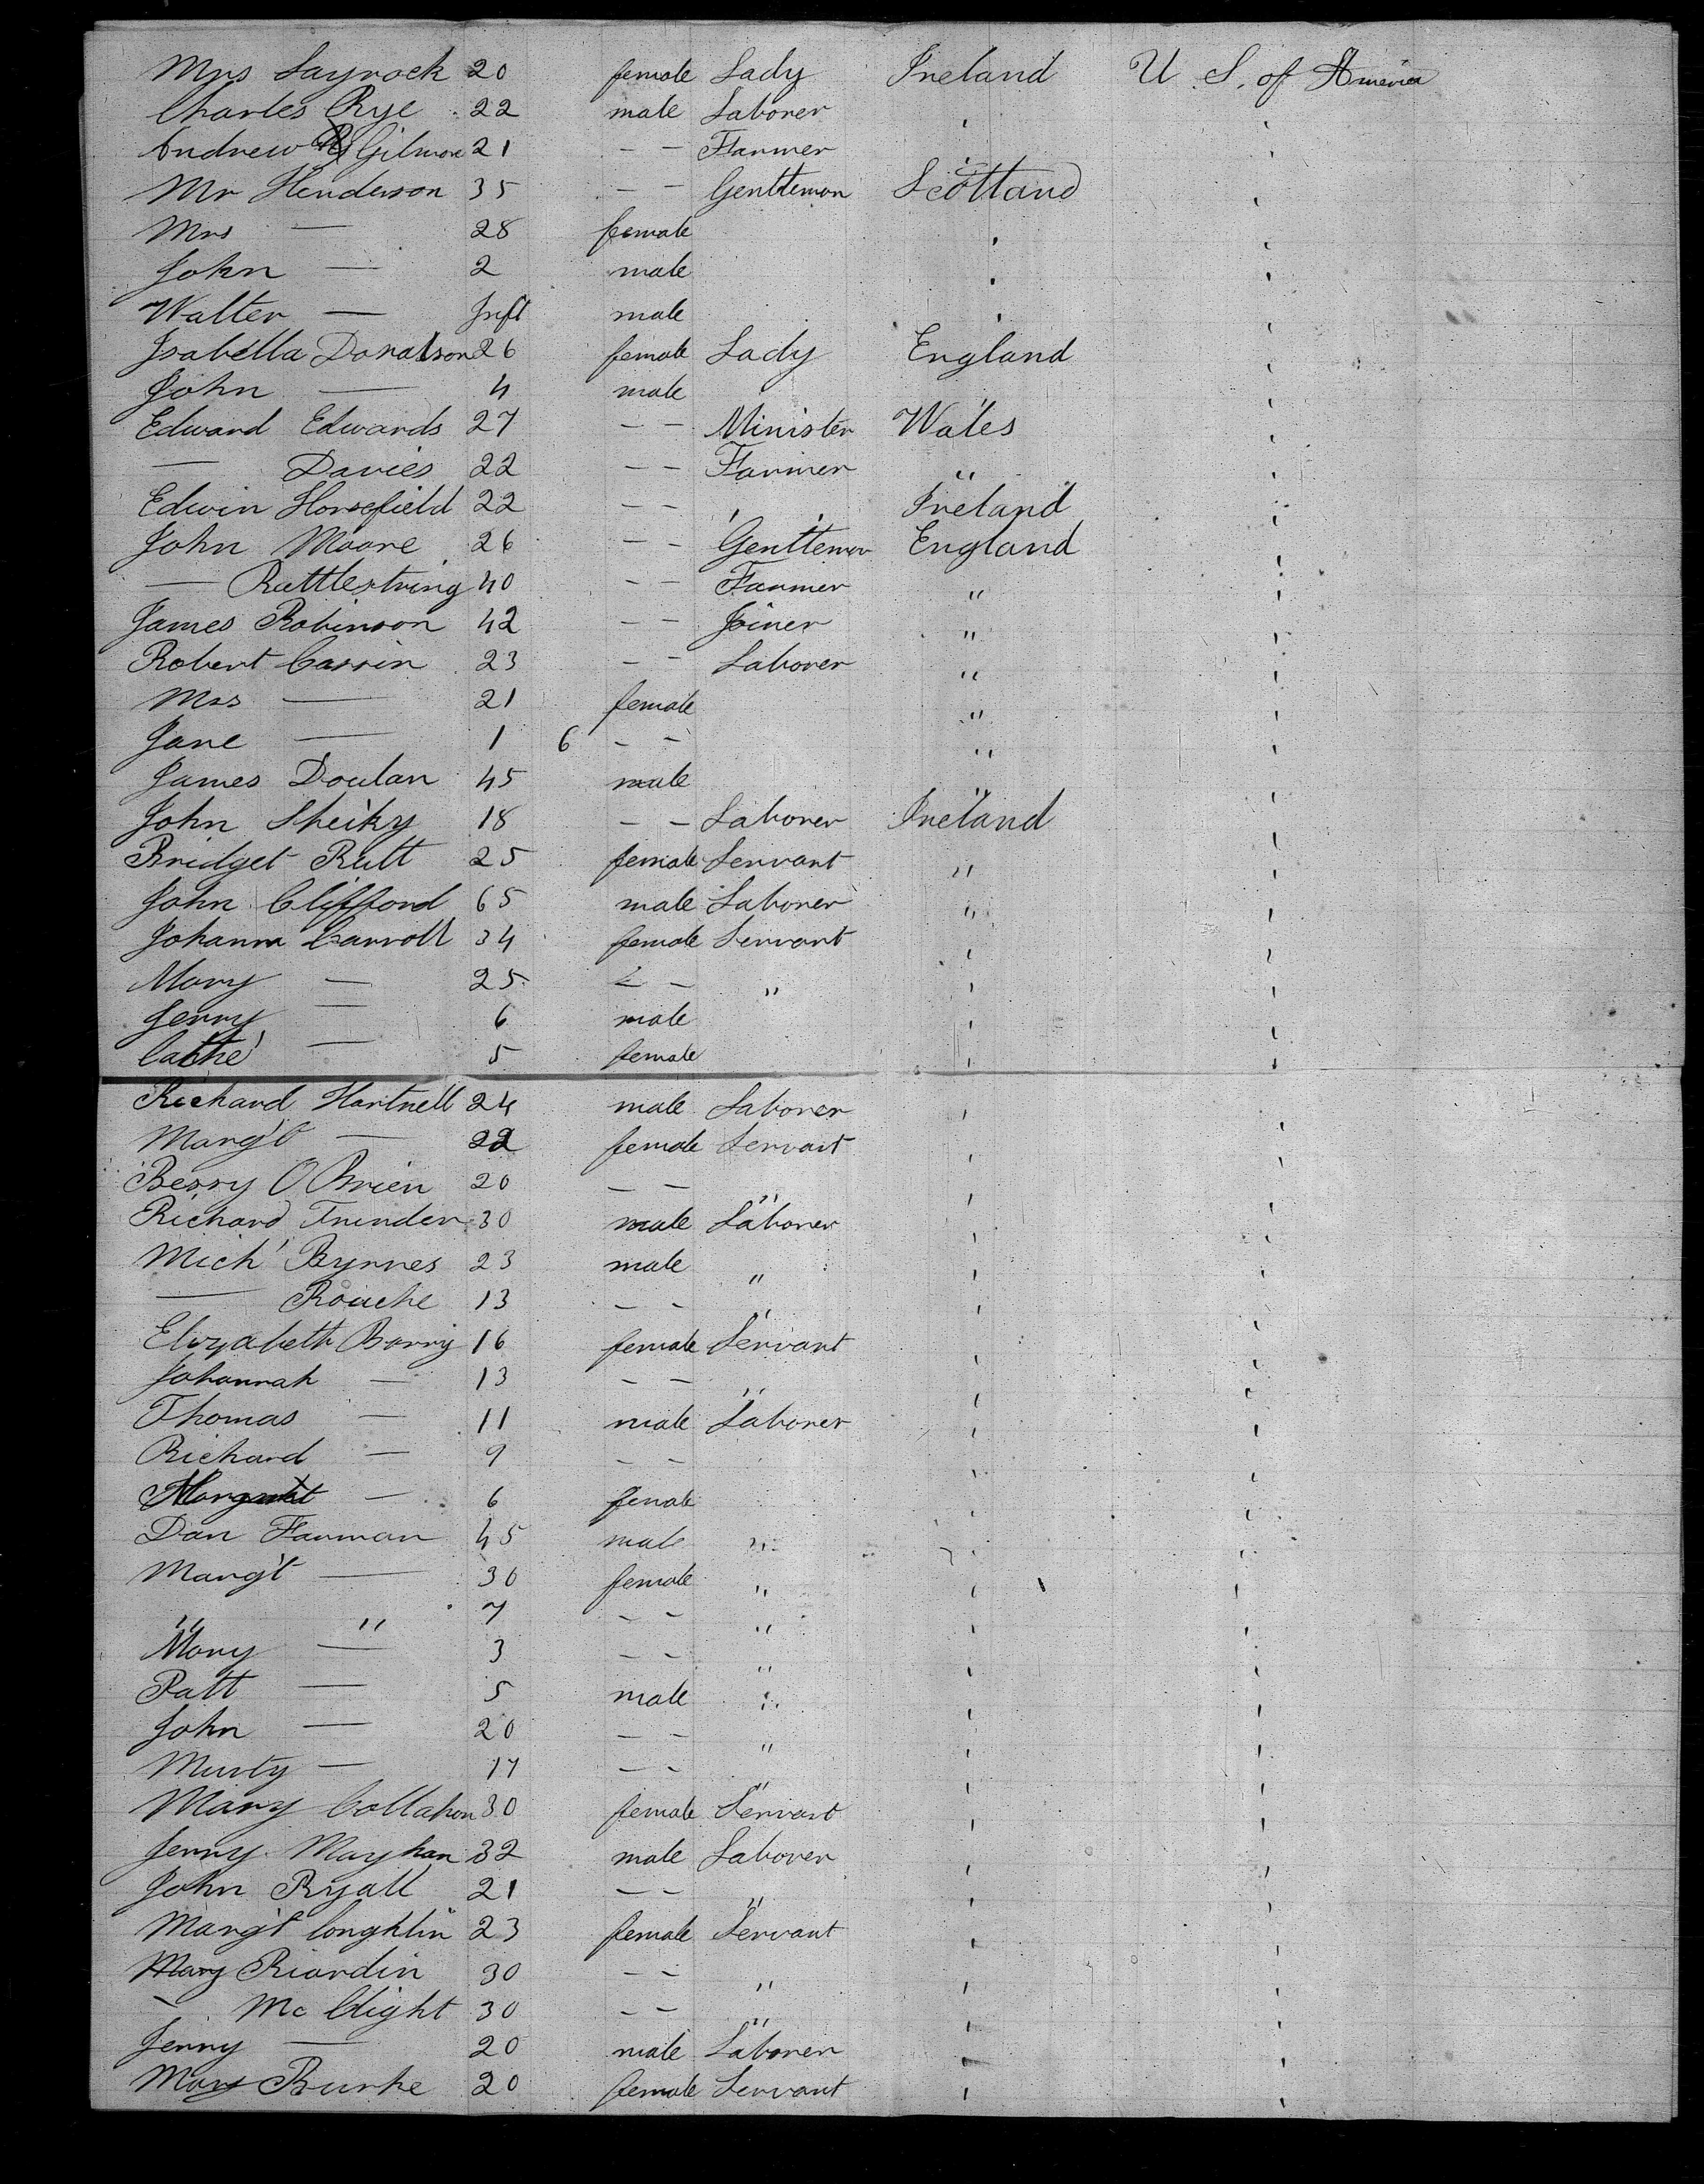 Mrs Layrock 20 female Lady Ireland U. S. of America
Charles Rye 22 male Laborer ,
Andrew Gilmore 21 — — Farmer ,
Mr Henderson 35 — — Gentleman Scotland
Mrs — 28 female ,
John — 2 male ,
Walter — Inft male ,
Isabella Donalson 26 female Lady England
John — 4 male ,
Edward Edwards 27 — — Minister Wales
— Davies 22 — — Farmer "
Edwin Horsefield 22 — — , , Ireland
John Moore 26 — — Gentleman England
— Rattlestring 40 — — Farmer "
James Robinson 42 — — Joiner "
Robert Cassin 23 — — Laborer "
Mrs — 21 female "
Jane — 1 6 — — "
James Doulan 45 male "
John Sheiky 18 — — Laborer Ireland
Bridget Rutt 25 female Servant "
John Clifford 65 male Laborer "
Johanna Carroll 34 female Servant ,
Mary — 25 — — " ,
Jerry — 6 male ,
Cathe' — 5 female ,
Richard Hartnell 24 male Laborer ,
Marg't — 22 female Servant ,
Bessy O Brien 20 — — " ,
Richard Trinder 30 male Laborer ,
Mich' Byrnes 23 male " ,
— Rouche 13 — — " ,
Elizabeth Barry 16 female Servant ,
Johannah — 13 — — " ,
Thomas — 11 male Laborer ,
Richard — 9 — — ,
Margaret — 6 female ,
Dan Farman 45 male " ,
Marg't — 30 female " ,
" " 7 — — " ,
Mary — 3 — — " ,
Patt — 5 male " ,
John — 20 — — " ,
Murty — 17 — — " ,
Mary Collahan 30 female Servant ,
Jerry Mayhan 32 male Laborer ,
John Ryall 21 — — " ,
Marg't Coughlin 23 female Servant ,
Mary Riordin 30 — — " ,
— Mc Clight 30 — — " ,
Jerry — 20 male Laborer ,
Mary Burke 20 female Servant ,